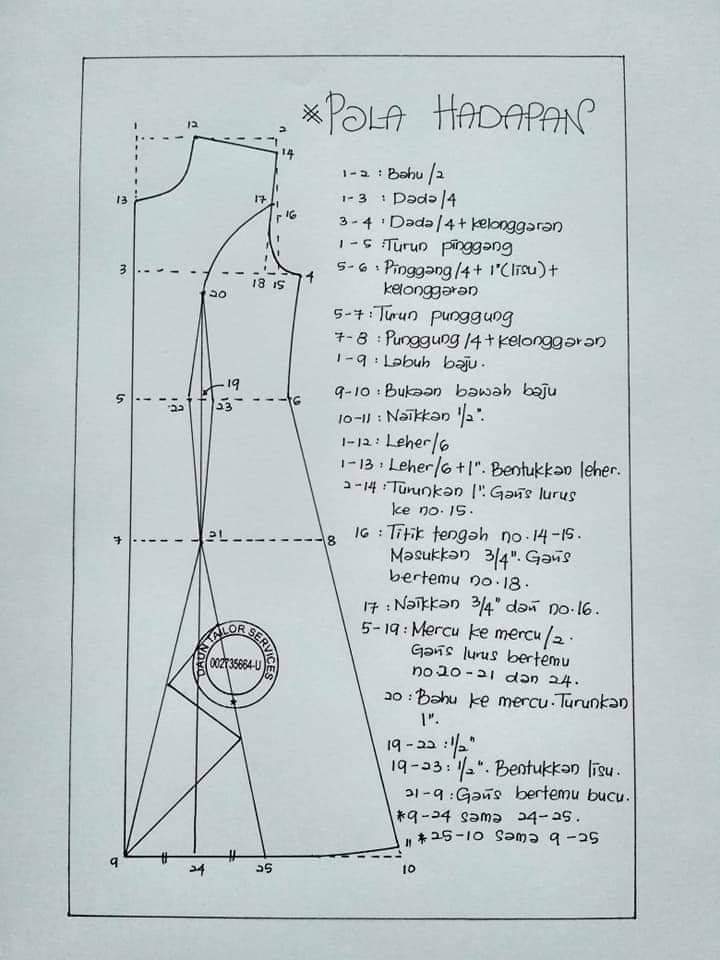 *POLA HADAPAN
1-2 : Bahu/2
1-3 : Dada/4
3-4 : Dada/4 + kelonggaran
1-5 : Turun pinggang
5-6 : Pinggang/4 + 1"(lisu) +
kelonggaran
5-7 : Turun punggung
7-8 : Punggung/4 + kelonggaran
1-9 : Labuh baju.
9-10 : Bukaan bawah baju
10-11 : Naikkan 1/2".
1-12 : Leher/6
1-13 : Leher/6 + 1". Bentukkan leher.
2-14 : Turunkan 1". Garis lurus
ke no. 15.
16 : Titik tengah no. 14-15.
Masukkan 3/4". Garis
bertemu no. 18.
17 : Naikkan 3/4" dari no. 16.
5-19 : Mercu ke mercu/2.
Garis lurus bertemu
no 20-21 dan 24.
20 : Bahu ke mercu. Turunkan
1".
19-22 : 1/2"
19-23 : 1/2". Bentukkan lisu.
21-9 : Garis bertemu bucu.
*9-24 sama 24-25.
*25-10 sama 9-25
1
12
2
14
13
17
16
3
18
15
4
20
19
5
22
23
6
7
21
8
DAUN TAILOR SERVICES
002735664-U
9
24
25
11
10